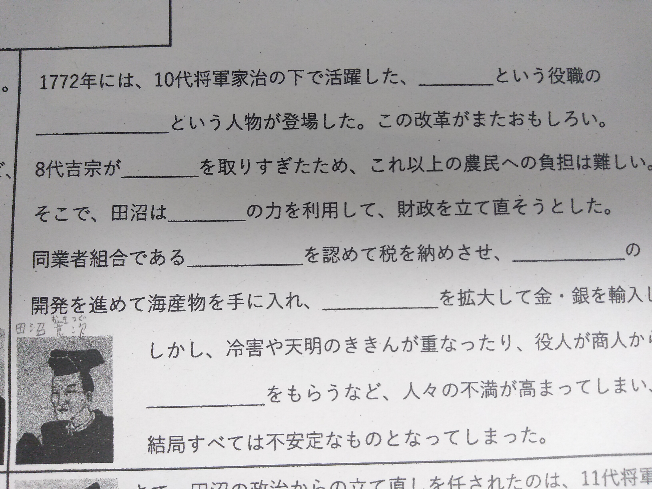 1772年には、10代将軍家治の下で活躍した、________という役職の
______________という人物が登場した。この改革がまたおもしろい。
8代吉宗が________を取りすぎたため、これ以上の農民への負担は難しい。
そこで、田沼は________の力を利用して、財政を立て直そうとした。
同業者組合である____________を認めて税を納めさせ、____________の
開発を進めて海産物を手に入れ、____________を拡大して金・銀を輸入し
田沼
しかし、冷害や天明のききんが重なったり、役人が商人から
____________をもらうなど、人々の不満が高まってしまい、
結局すべては不安定なものとなってしまった。
田沼の政治からの立て直しを任されたのは、11代将軍